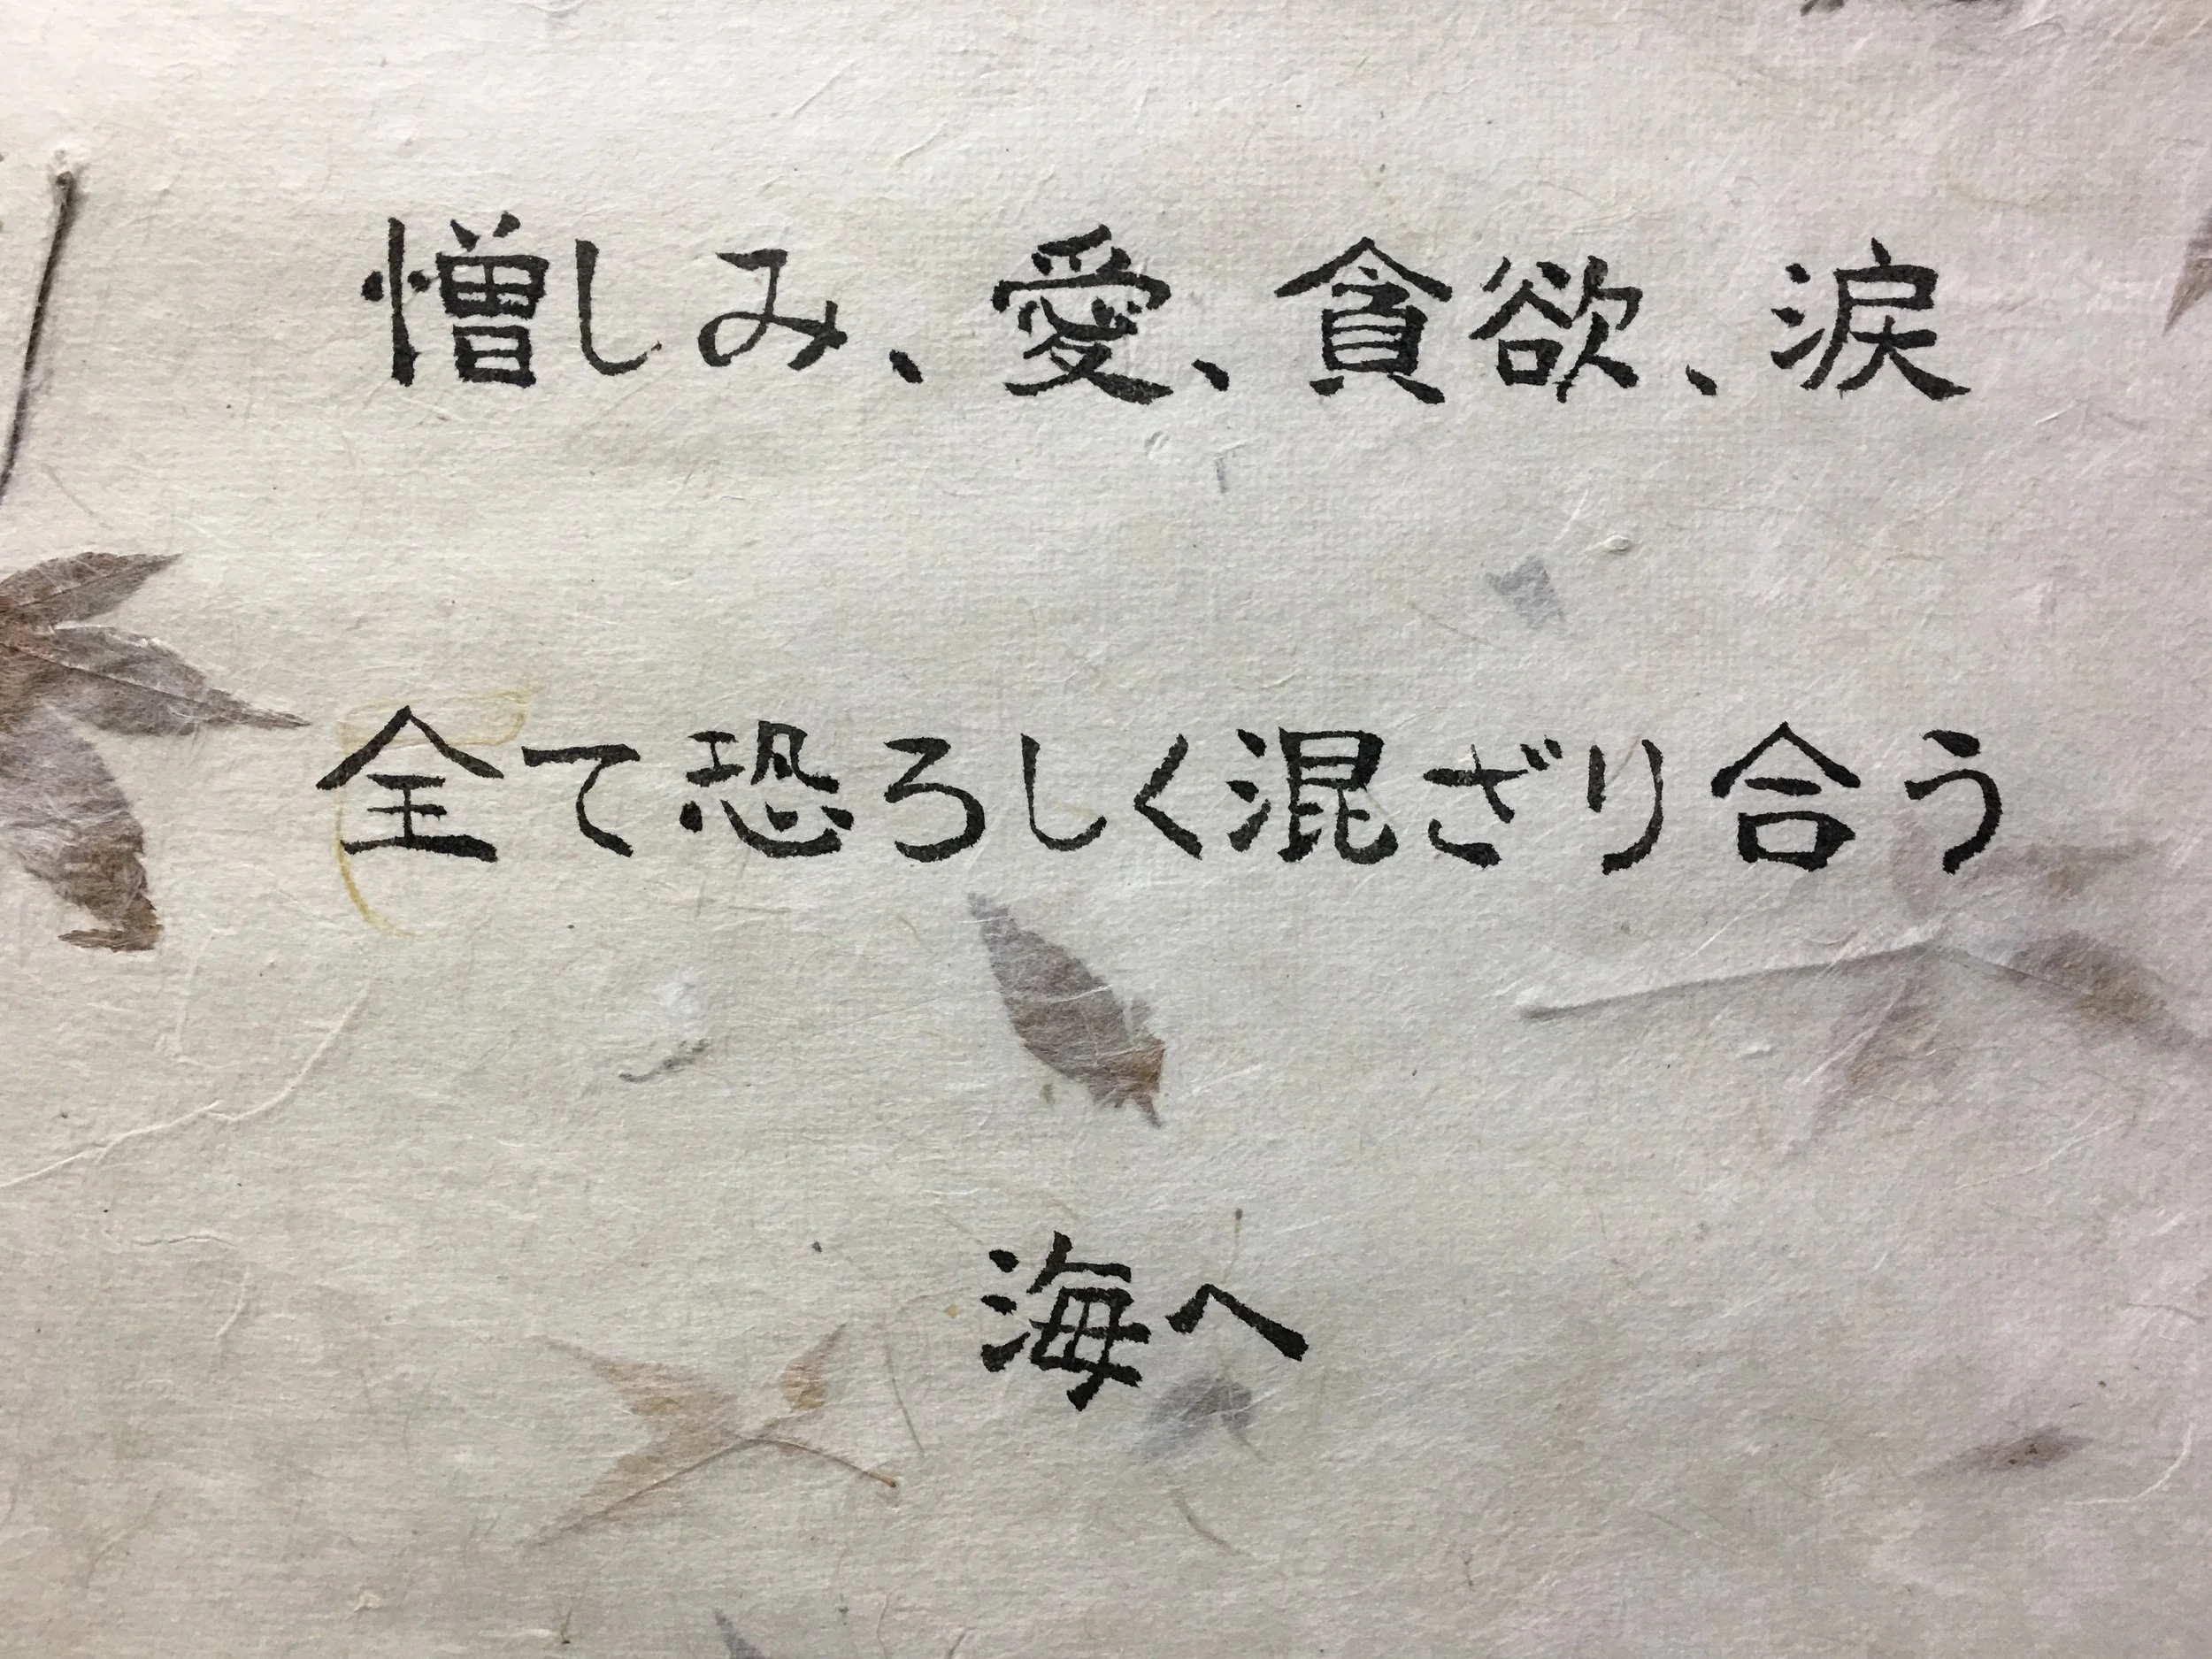 憎しみ、愛、貪欲、涙
全て恐ろしく混ざり合う
海へ